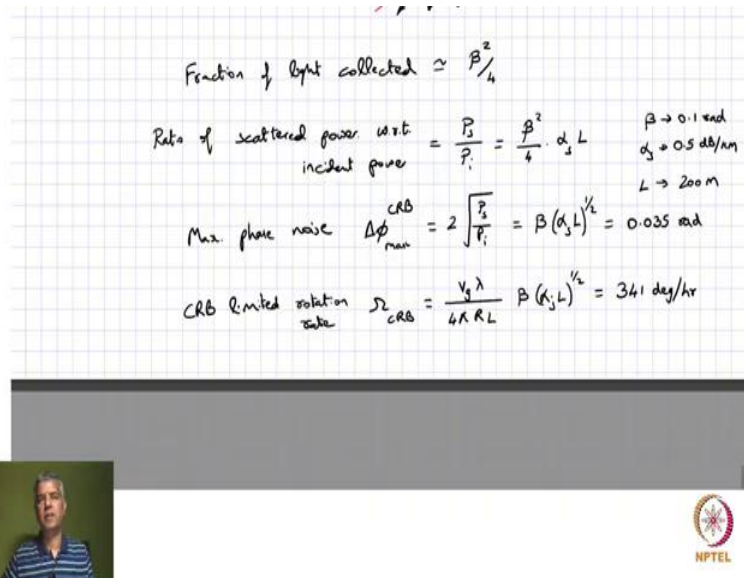 Fraction of light collected ≃ β²/4
Ratio of scattered power w.r.t. incident power = Ps/Pi = β²/4 · αs L
β → 0.1 rad
αs → 0.5 dB/km
L → 200 m
Max. phase noise Δϕ max CRB = 2 √(Ps/Pi) = β (αs L)^1/2 = 0.035 rad
CRB limited rotation rate Ω CRB = vg λ / 4π R L β (αs L)^1/2 = 341 deg/hr
NPTEL